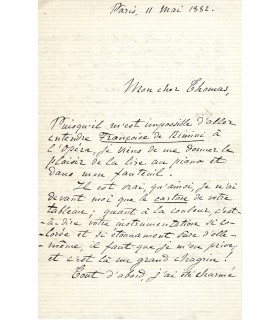 Paris, 11 Mai 1882.
Mon cher Thomas,
Puisqu'il m'est impossible d'aller
entendre Françoise de Rimini à
l'Opéra, je viens de me donner le
plaisir de la lire au piano et
dans mon fauteuil.
Il est vrai qu'ainsi, je n'ai
devant moi que le carton de votre
tableau; quant à la couleur, c'est-
à-dire votre instrumentation si co-
lorée et si étonnament sûre d'elle-
même, il faut que je m'en prive,
et c'est là un grand chagrin!
Tout d'abord, j'ai été charmé